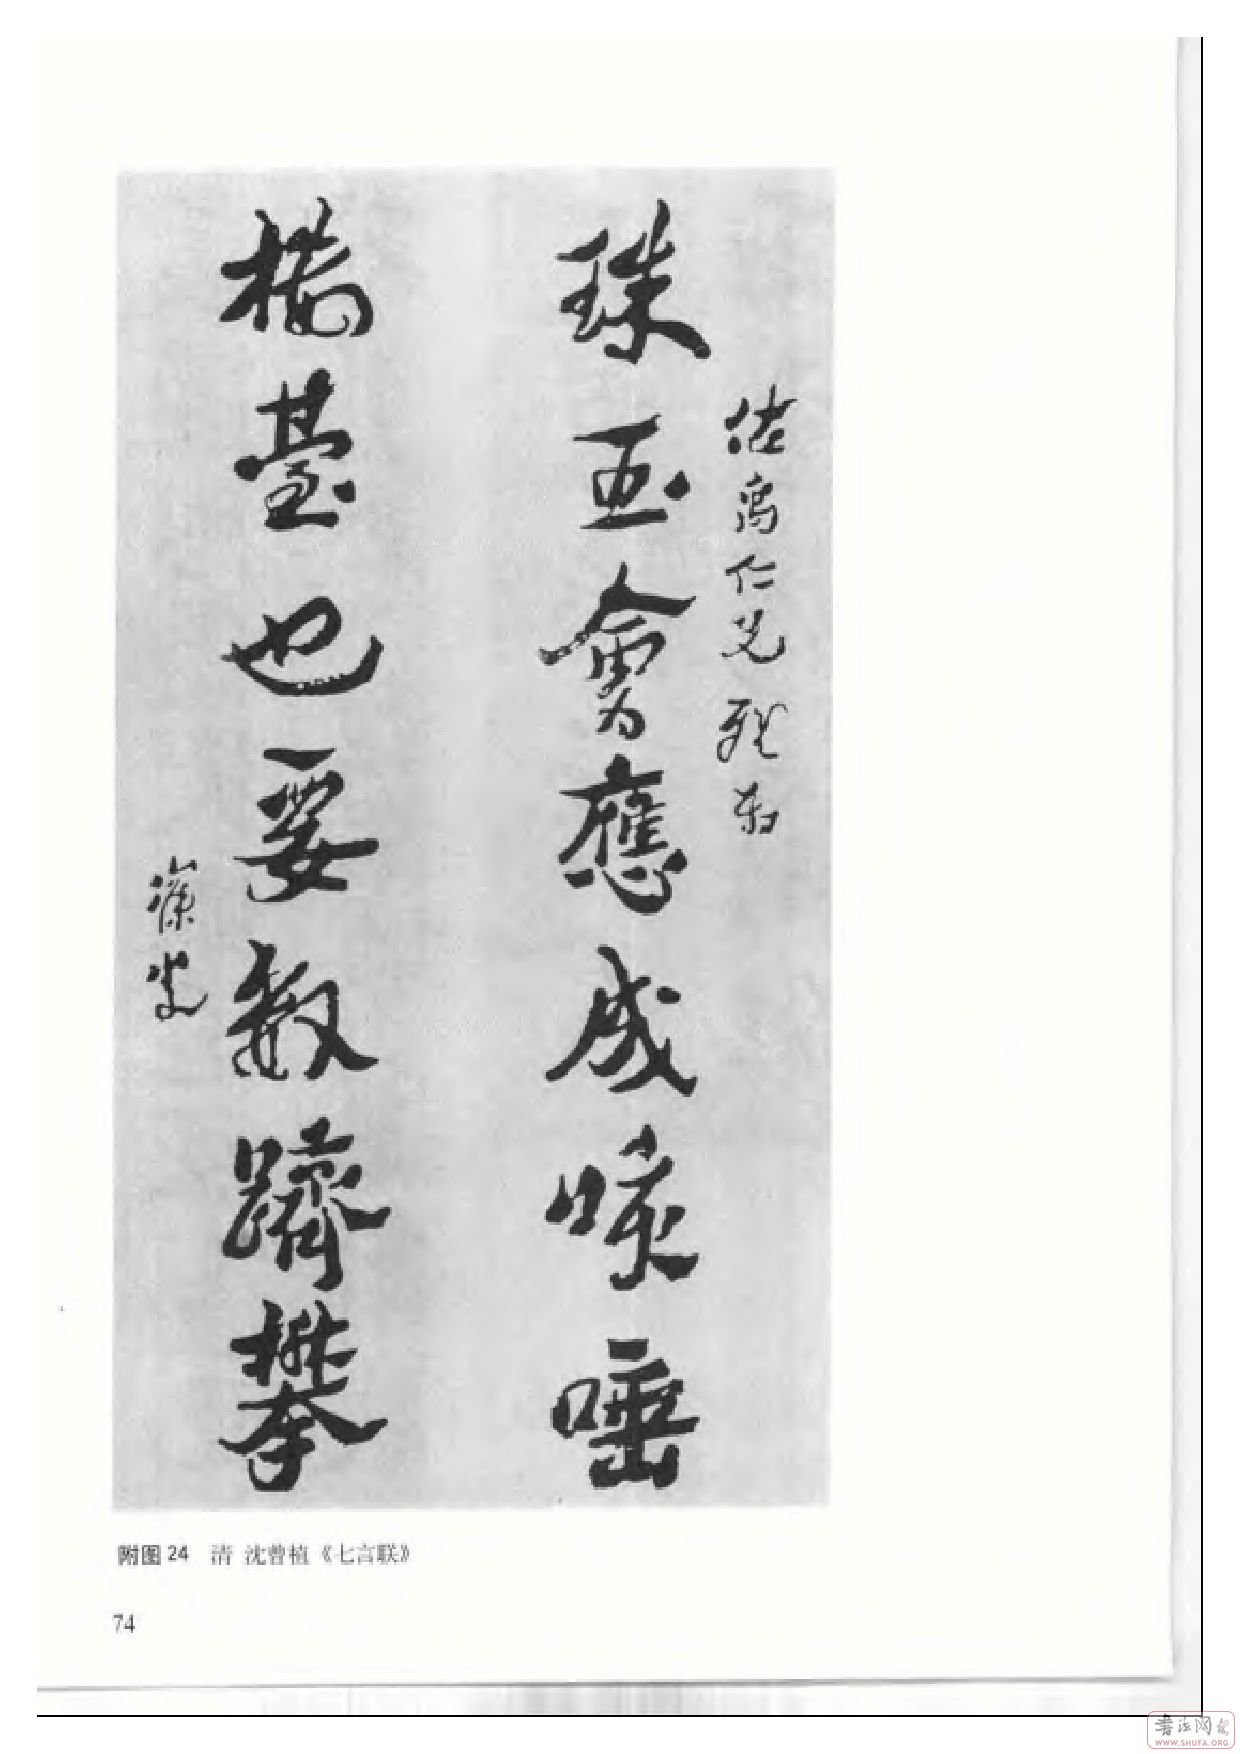 佑禹仁兄雅勑
珠玉會應成咳唾
楼臺也要數躋攀
寐叟
附图24 清 沈曾植《七言联》
74
书法网
WWW.SHUFA.ORG